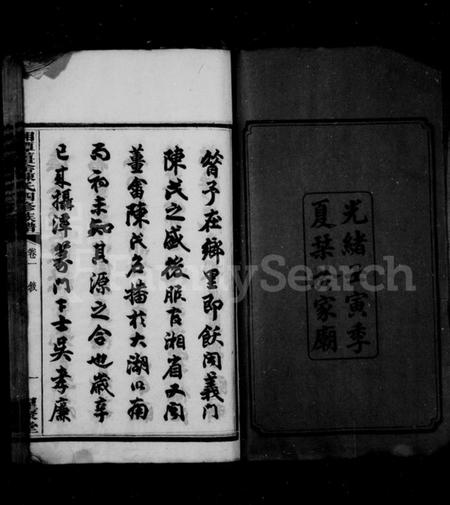 光緒壬寅季
夏栞於家廟
曾予在鄉里即飫聞義門
陳氏之盛後服官湘省又聞
薑畬陳氏名播於大湖以南
而初未知其源之合也歲辛
已來攝潭篆門下士吳孝廉
湘潭薑畬陳氏四修族譜
卷一
敘
一
聚堂
FamilySearch